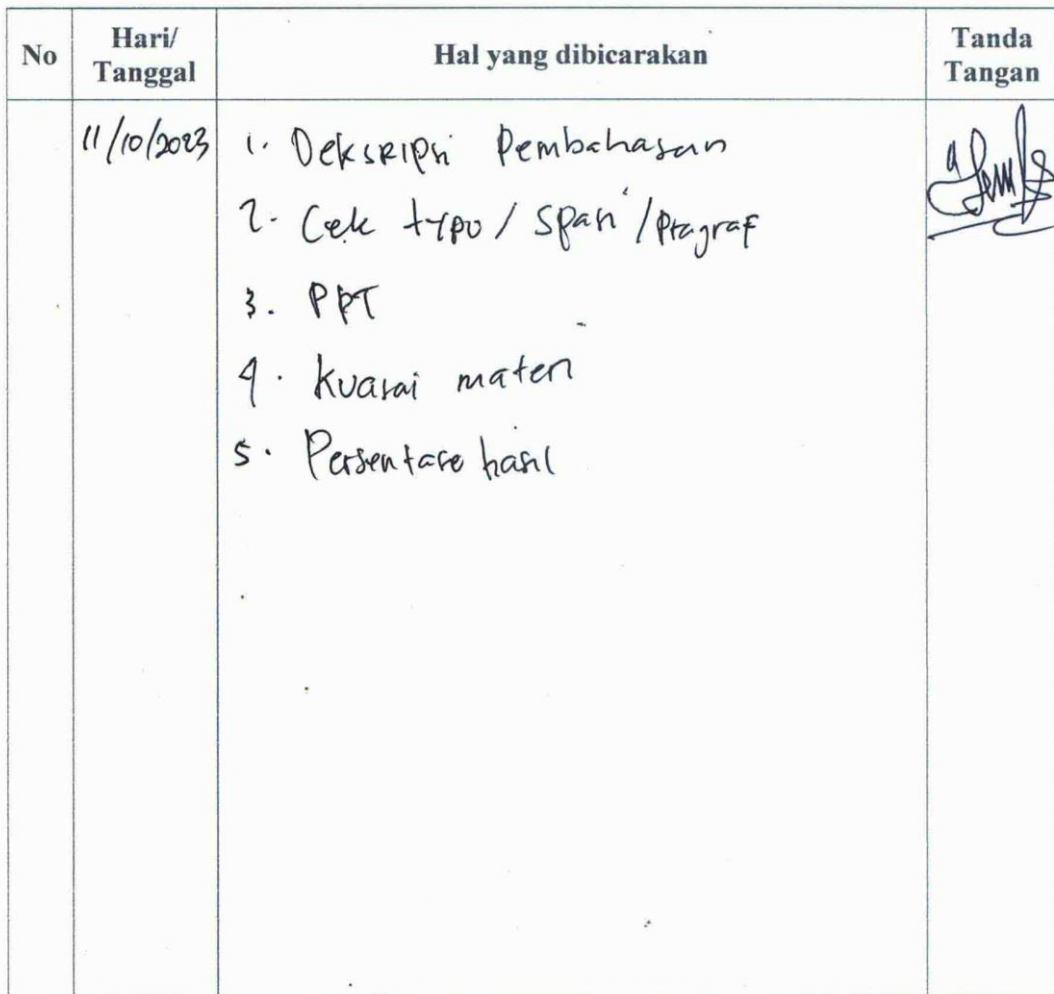 No
Hari/
Tanggal
Hal yang dibicarakan
Tanda
Tangan
11/10/2023
1. Deksripsi Pembahasan
2. Cek typo / Spasi / Pragraf
3. PPT
4. Kuasai materi
5. Persentase hasil